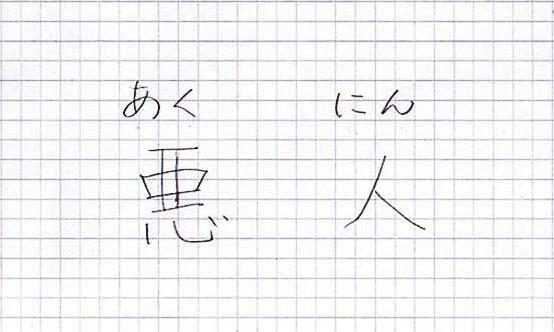 あく にん
悪 人